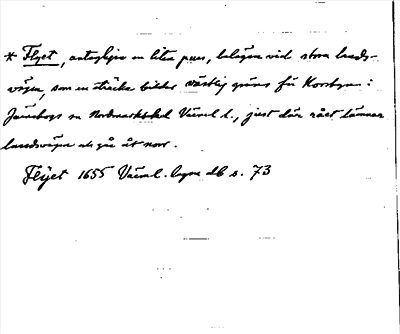 * Flyet, antagligen en liten puss, belägen vid stora lands-
vägen, som en sträcka bildar västlig gräns för Korsbyn i
Järnskogs sn Nordmarks hd Värml l., just där rået lämnar
landsvägen att gå åt norr.
Flÿet 1655 Värml. lagm db s. 73